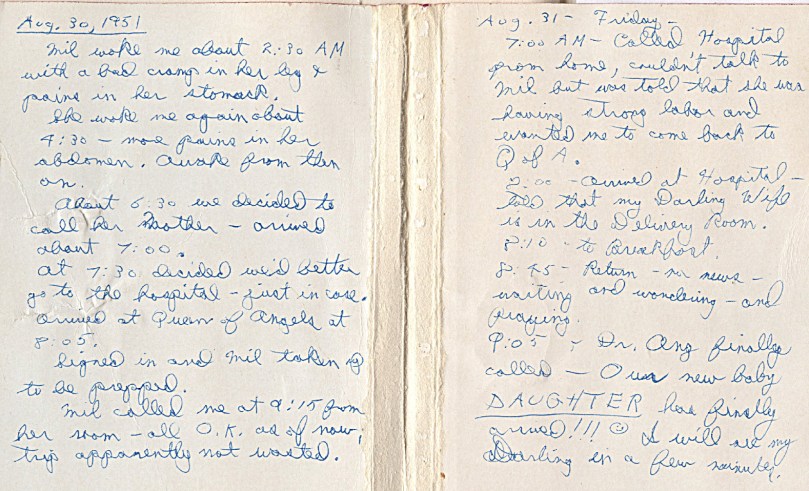 Aug. 30, 1951
Mil woke me about 2:30 AM
with a bad cramp in her leg &
pains in her stomach.
She woke me again about
4:30 – more pains in her
abdomen. Awake from then
on.
About 6:30 we decided to
call her Mother – arrived
about 7:00.
At 7:30 decided we'd better
go to the hospital – just in case.
Arrived at Queen of Angels at
8:05.
Signed in and Mil taken
to be prepped.
Mil called me at 9:15 from
her room – all O.K. as of now;
trip apparently not wasted.
Aug. 31 – Friday –
7:00 AM – Called Hospital
from home, couldn't talk to
Mil but was told that she was
having strong labor and
wanted me to come back to
Q of A.
8:00 – arrived at Hospital –
told that my Darling Wife
is in the Delivery Room.
8:10 – to Breakfast.
8:45 – Return – no news –
waiting and wondering – and
praying.
9:05 – Dr. Ang finally
called – Our new baby
DAUGHTER has finally
arrived!!! ☺ I will see my
Darling in a few minutes.